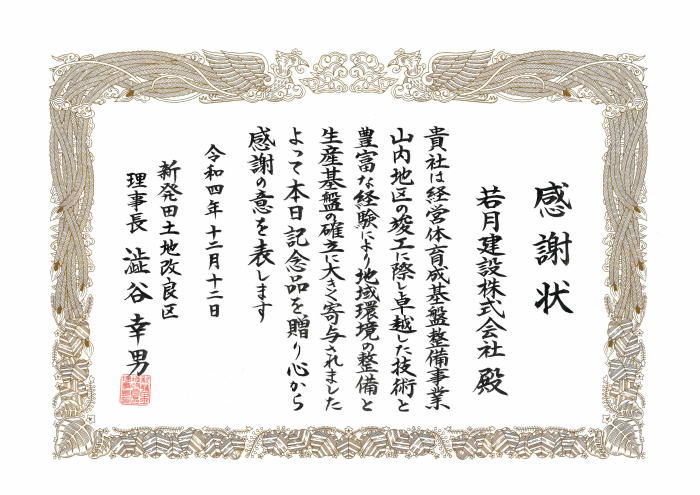 感謝状
若月建設株式会社 殿
貴社は経営体育成基盤整備事業
山内地区の竣工に際し卓越した技術と
豊富な経験により地域環境の整備と
生産基盤の確立に大きく寄与されました
よって本日記念品を贈り心から
感謝の意を表します
令和四年十二月十二日
新発田土地改良区
理事長 澁谷幸男